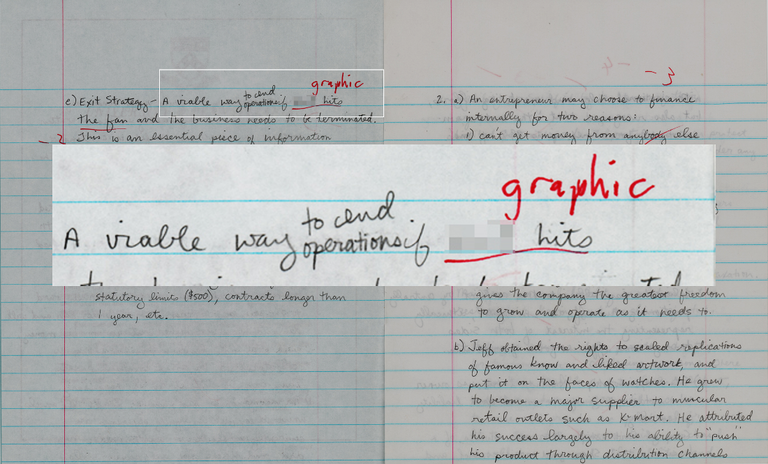 graphic
c) Exit Strategy - A viable way to end operations if hits
the fan and the business needs to be terminated.
-2 This is an essential piece of information
graphic
A viable way to end operations if hits
statutory limits ($500), contracts longer than
1 year, etc.
-3
2. a) An entrepreneur may choose to finance
internally for two reasons:
1) can't get money from anybody else
gives the company the greatest freedom
to grow and operate as it needs to.
b) Jeff obtained the rights to scaled replications
of famous know and liked artwork, and
put it on the faces of watches. He grew
to become a major supplier to muscular
retail outlets such as K-mart. He attributed
his success largely to his ability to "push"
his product through distribution channels